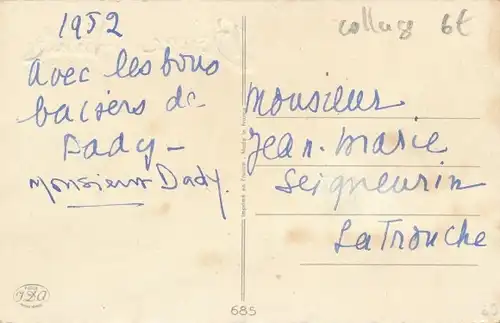 1952
avec les bons
baisers de
Dady -
Monsieur Dady.
collage 6€
Monsieur
Jean-Marie
Seigneurin
La Tronche
Imprimé en France - Made in France
685